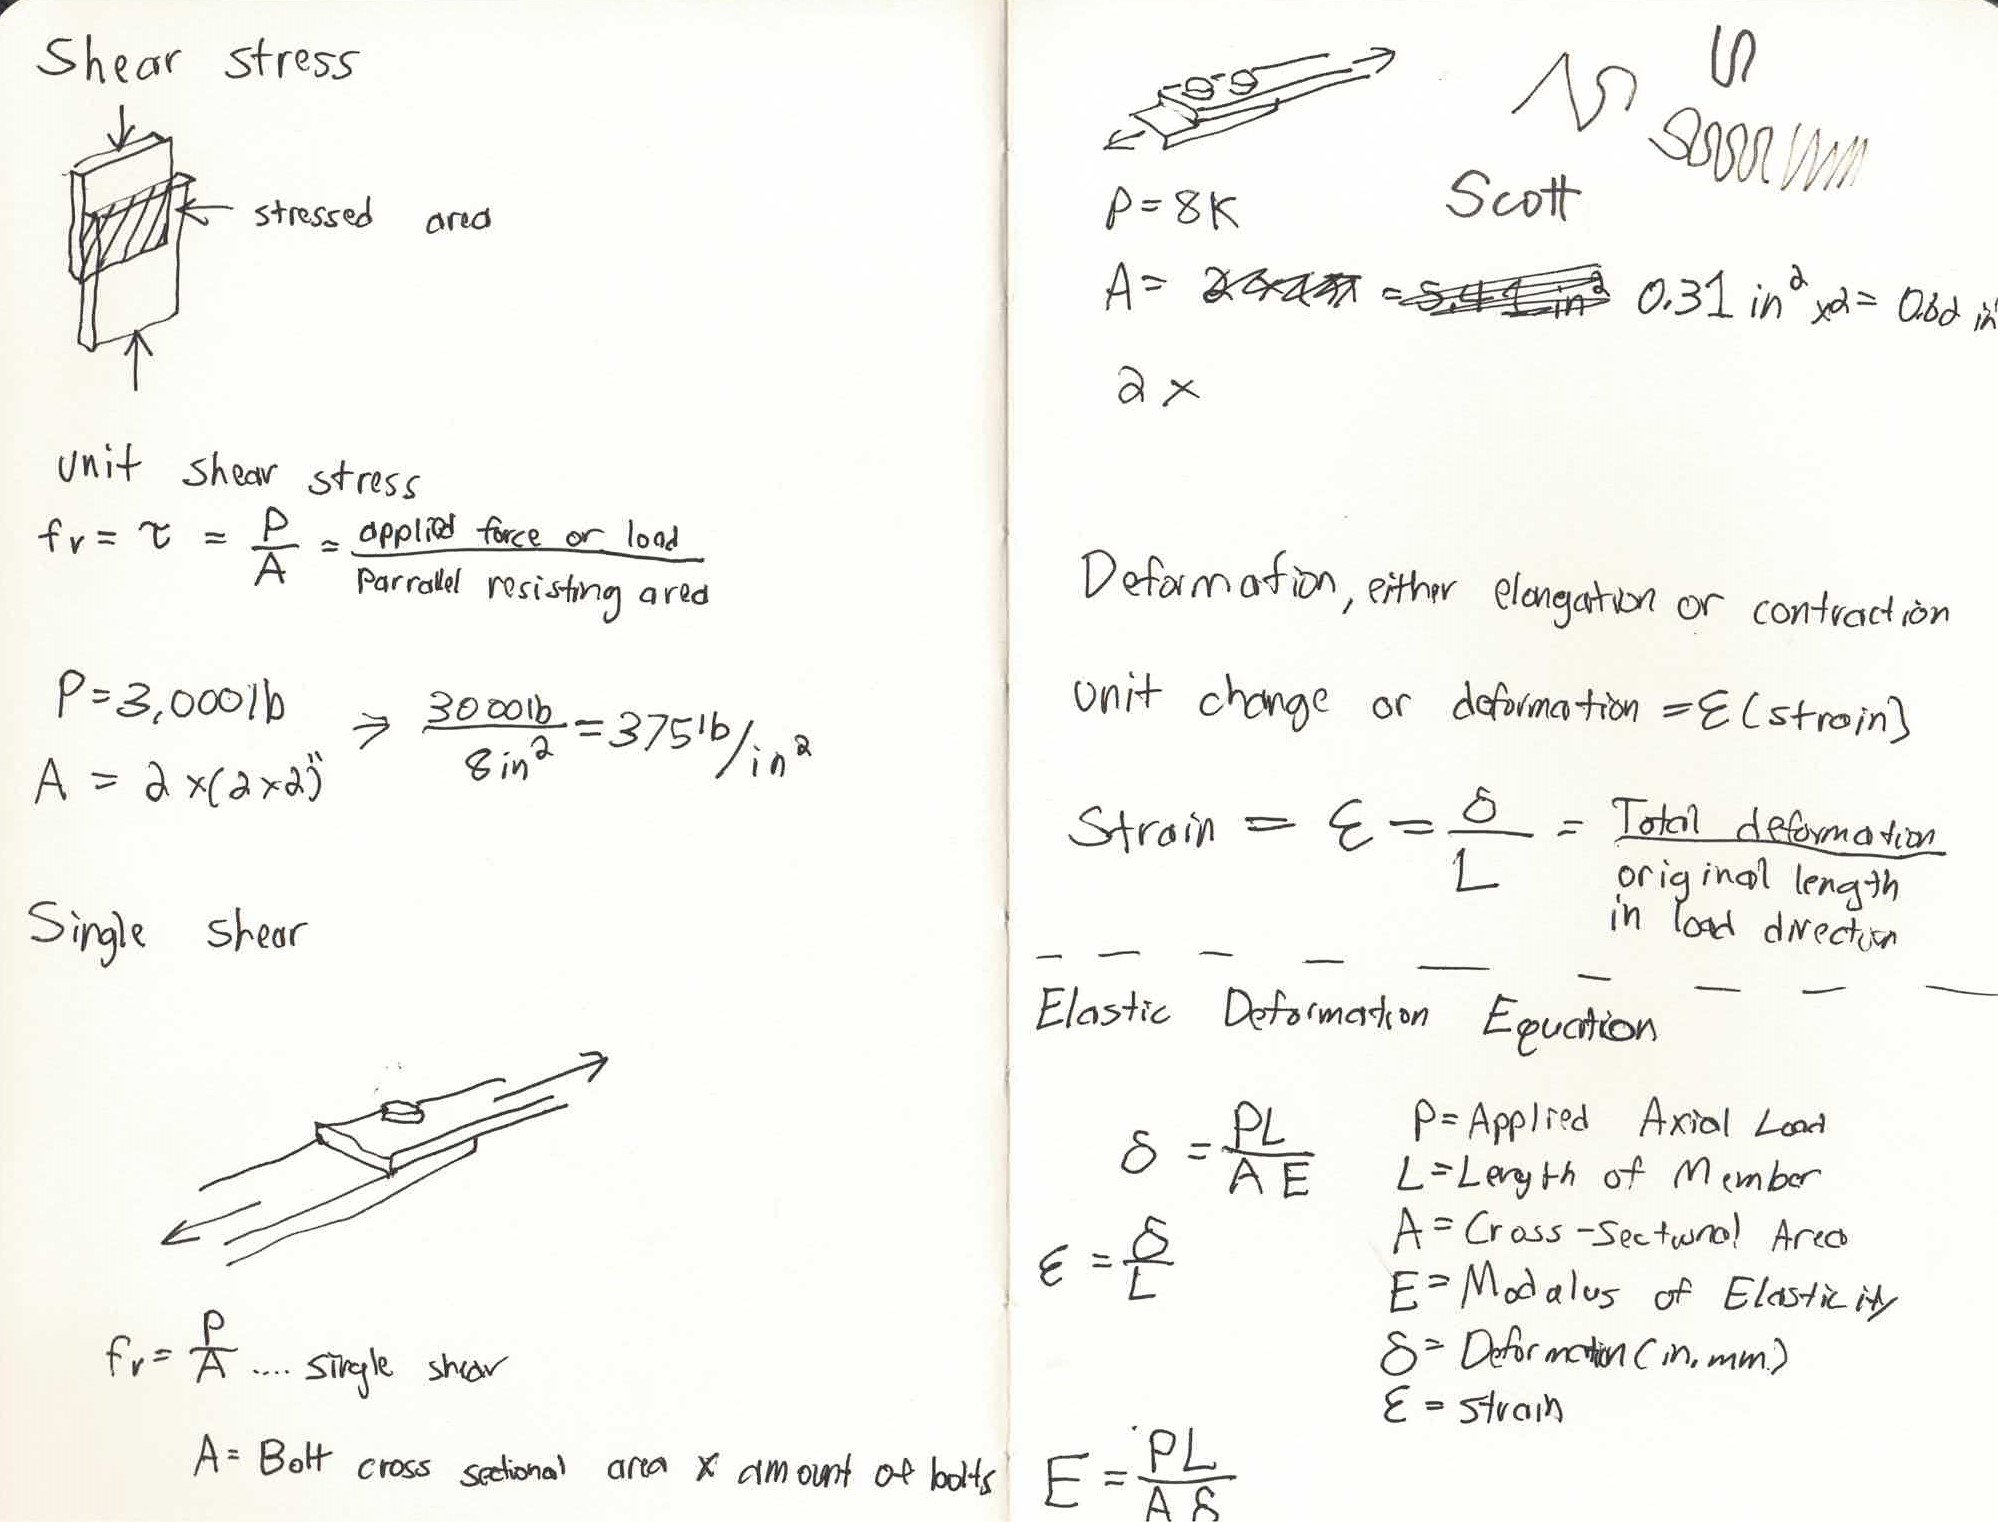 Shear stress
stressed area
unit shear stress
fv = τ = P/A = applied force or load / Parrallel resisting area
P=3,000lb
A = 2 x(2x2)"
→ 3000lb / 8in² = 375lb/in²
Single shear
fv = P/A .... single shear
A= Bolt cross sectional area x amount of bolts
P=8K
Scott
A= 0.31 in² x2= 0.62 in
2 x
Deformation, either elongation or contraction
unit change or deformation = ε (strain)
Strain = ε = δ/L = Total deformation / original length in load direction
Elastic Deformation Equation
δ = PL / AE
ε = δ/L
P= Applied Axial Load
L= Length of Member
A= Cross-Sectional Area
E= Modalus of Elasticity
δ= Deformation (in. mm.)
ε = strain
E = PL / Aδ